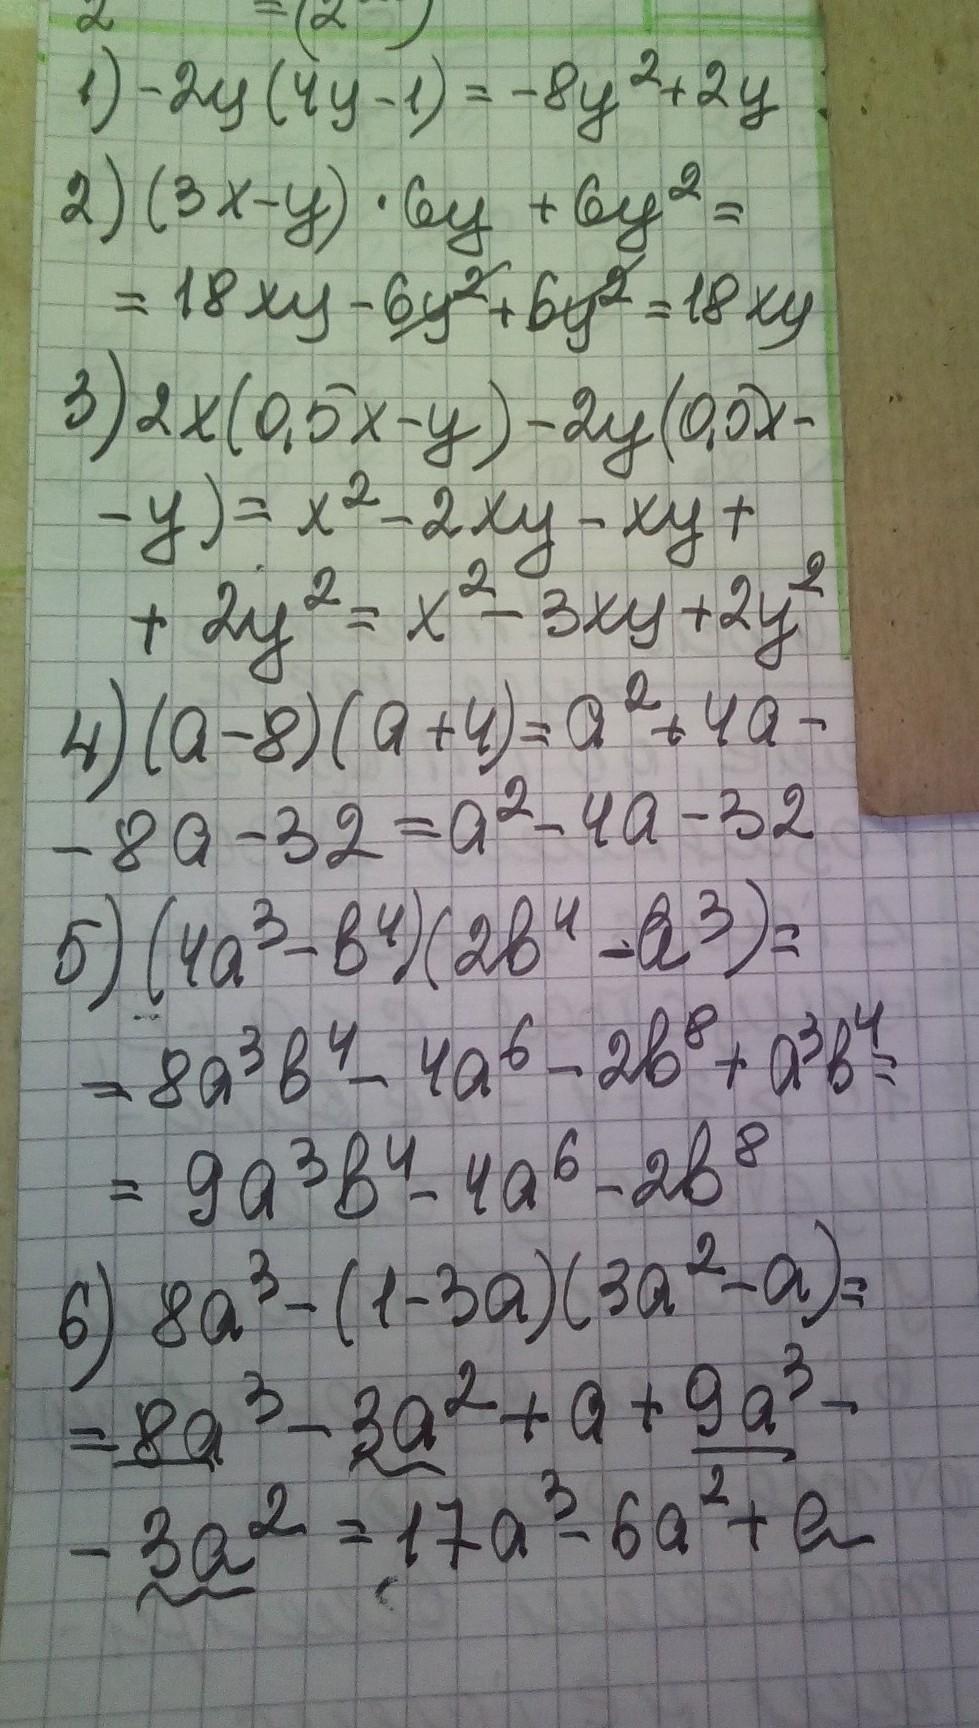 2 = (2
1) -2y (4y - 1) = -8y² + 2y
2) (3x - y) · 6y + 6y² =
= 18xy - 6y² + 6y² = 18xy
3) 2x(0,5x - y) - 2y(0,5x -
- y) = x² - 2xy - xy +
+ 2y² = x² - 3xy + 2y²
4) (a - 8)(a + 4) = a² + 4a -
- 8a - 32 = a² - 4a - 32
5) (4a³ - b⁴)(2b⁴ - a³) =
= 8a³b⁴ - 4a⁶ - 2b⁸ + a³b⁴ =
= 9a³b⁴ - 4a⁶ - 2b⁸
6) 8a³ - (1 - 3a)(3a² - a) =
= 8a³ - 3a² + a + 9a³ -
- 3a² = 17a³ - 6a² + a